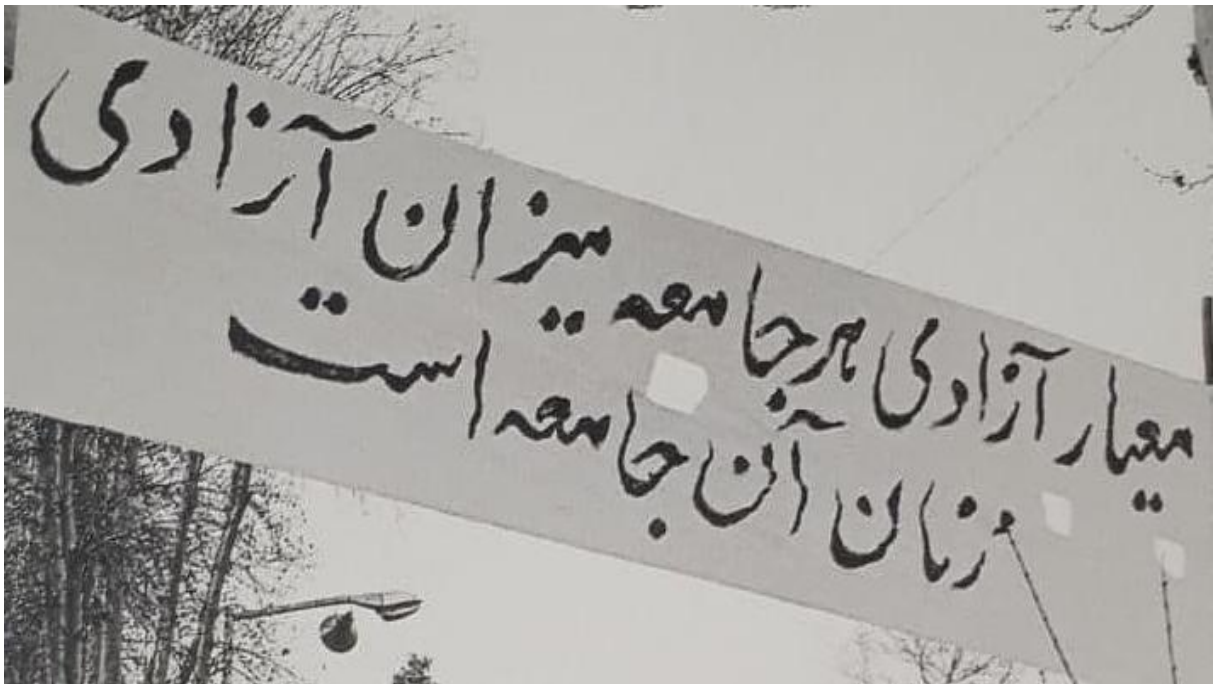 معیار آزادی هر جامعه میزان آزادی
زنان آن جامعه است